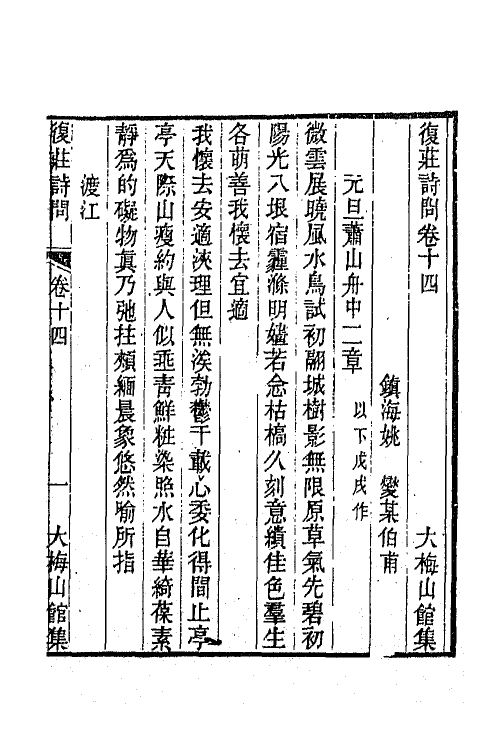 復莊詩問卷十四　大梅山館集
鎮海姚　燮某伯甫
元旦蕭山舟中二章　以下戊戌作
微雲展曉風水鳥試初翮城樹影無限原草氣先碧初
陽光八垠宿靄滌明嫿若念枯槁久刻意繢佳色羣生
各萌善我懷去宜適
我懷去安適浹理但無涘勃鬱千載心委化得閒止亭
亭天際山瘦約與人似垂靑鮮粧染照水自華綺葆素
靜爲的礙物眞乃弛拄頰緬晨象悠然喻所指
渡江
復莊詩問　卷十四　一　大梅山館集